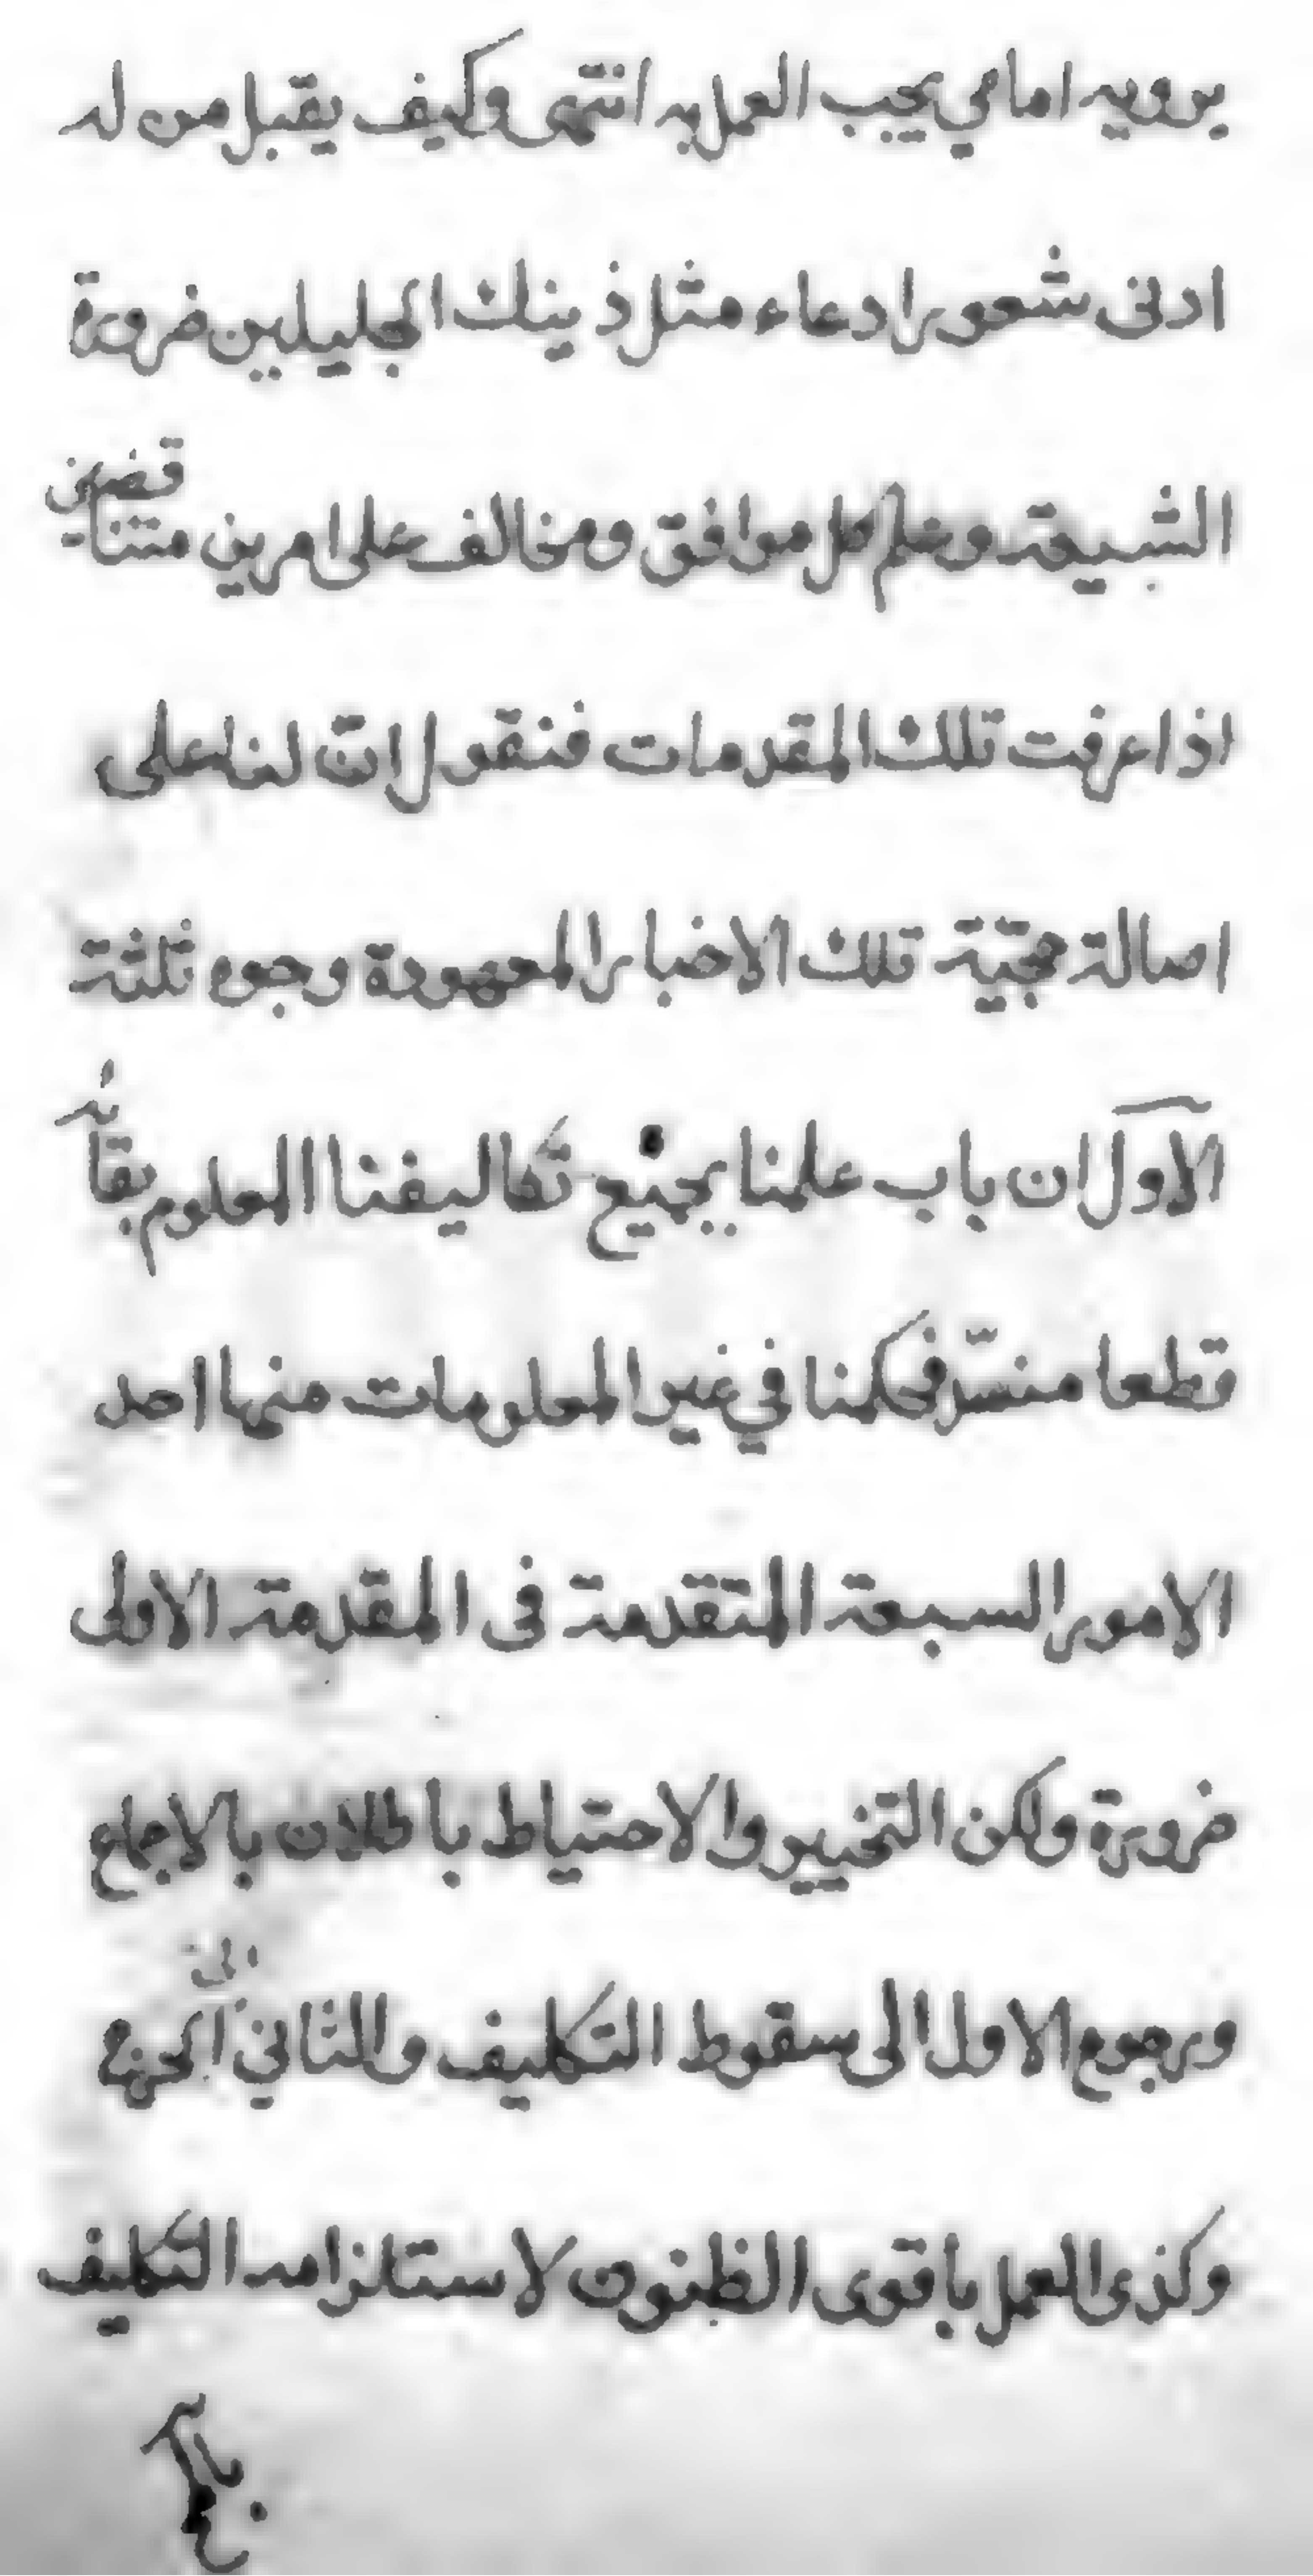 يرويه امامي يجب العمل به انتهى وكيف يقبل من له
ادنى شعور ادعاء مثل ذينك الجليلين ضرورة
الشيعة وعلم كل موافق ومخالف على امرين متناقضين
اذا عرفت تلك المقدمات فنقول ان لنا على
اصالة حجّيّة تلك الاخبار المعهودة وجوه ثلثة
الاول ان باب علمنا بجميع تكاليفنا المعلوم بقائه
قطعا منسدّ فحكمنا في غير المعلومات منها احد
الامور السبعة المتقدمة فى المقدمة الاولى
ضرورة ولكن التخيير والاحتياط باطلان بالاجماع
ورجوع الاول الى سقوط التكليف والثاني الى الحرج
وكذى العمل باقوى الظنون لاستلزامه التكليف
بما